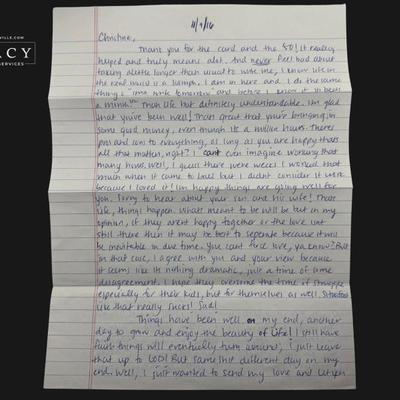 VILLE.COM
ACY
SERVICES
11/9/16
Christine,
Thank you for the card and the $50! It really
helped and truly means alot. And never feel bad about
taking alittle longer than usual to write me, I know life in
the real world is a handful, I am in here and I do the same
thing; "I'll write tomorrow" and before I know it its been
a month. That's life but definitely understandable. I'm glad
that you've been well! Thats great that you're bringing in
some good money, even though its a million hours. Theres
pros and cons to everything, as long as you are happy thats
all that matters, right? I cant even imagine working that
many hours. Well, I guess there were weeks I worked that
much when it came to but I didnt consider it work
because I loved it! I'm happy things are going well for
you. Sorry to hear about your son and his wife! Thats
life, things happen. Whats meant to be will be but in my
opinion, if they arent happy together or the love isnt
still there then it may be best to seperate because it will
be inevitable in due time. You cant force love, ya know? But
in that case, I agree with you and your view because
it seems like its nothing dramatic, just a time of some
disagreement. I hope they overcome the time of struggle
especially for their kids, but for themselves as well. Situations
like that really sucks!
Things have been well on my end, another
day to grow and enjoy the beauty of life! I still have
faith things will eventually turn around, I just leave
that up to GOD! But same shit different day on my
end. Well, I just wanted to send my love and let you